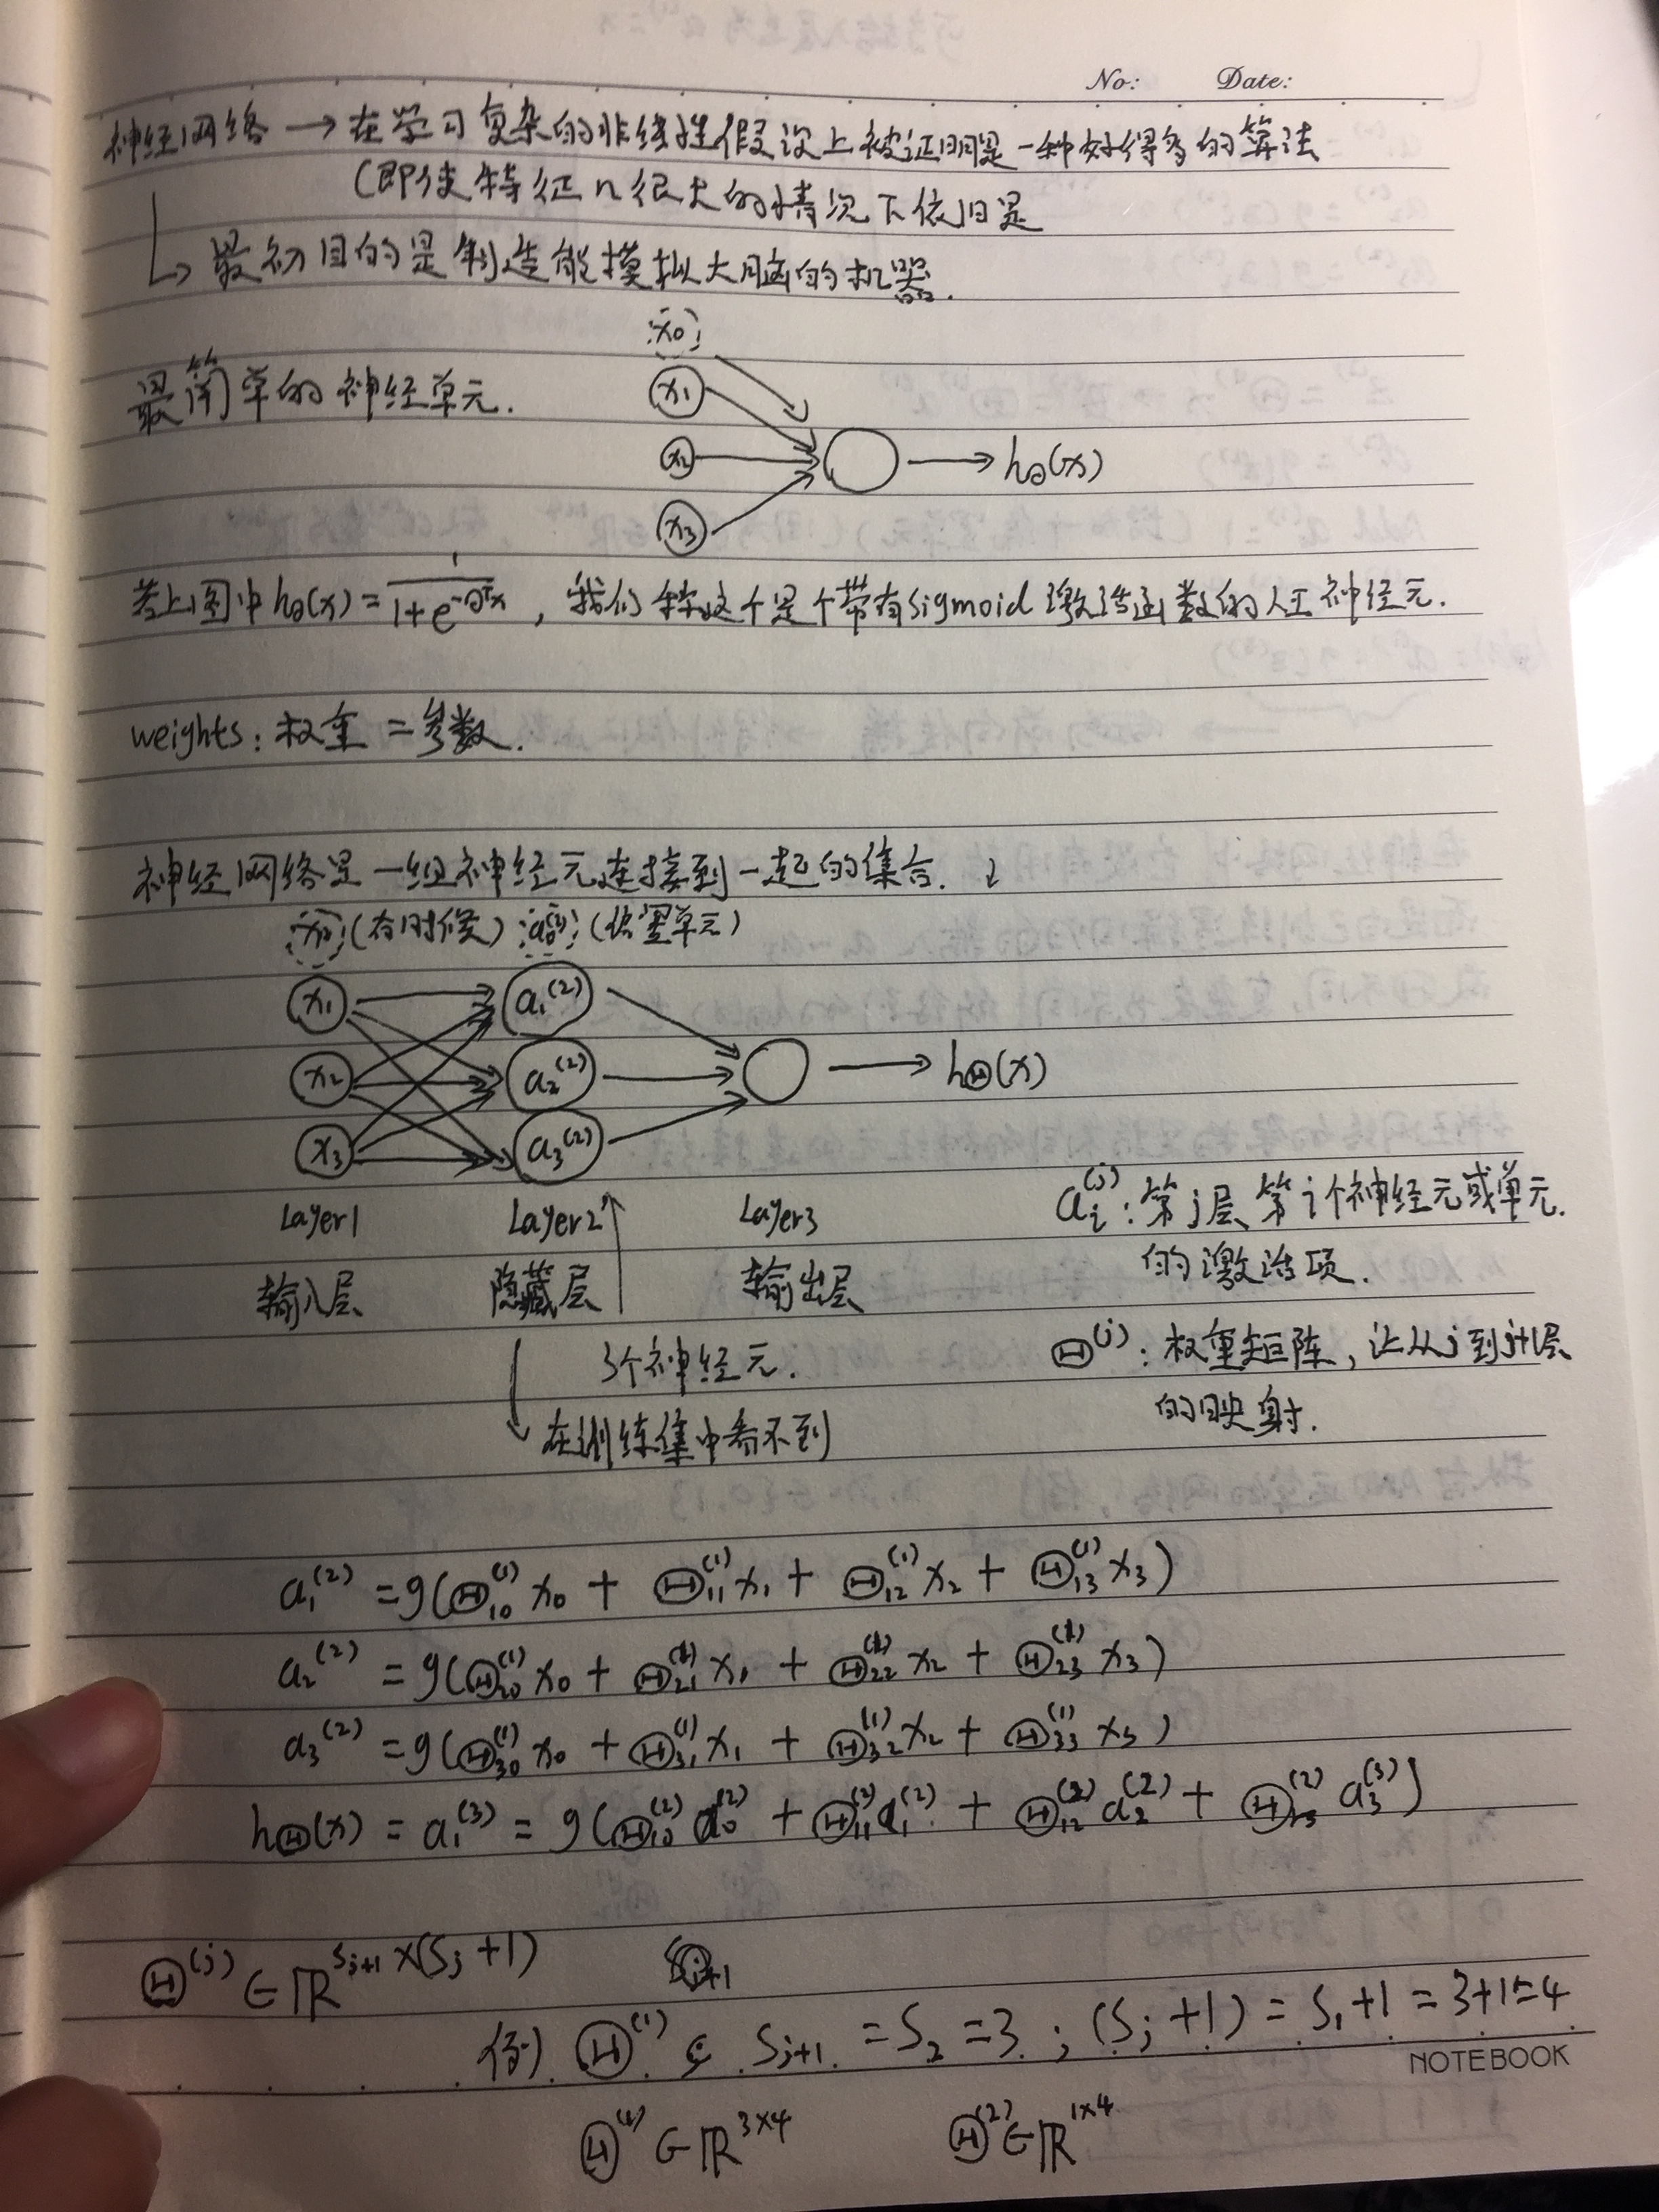 No: Date:
神经网络 → 在学习复杂的非线性假设上被证明是一种好得多的算法
(即使特征n很大的情况下依旧是
↳ 最初目的是制造能摸拟大脑的机器.
x0
最简单的神经单元. x1
x2 → hθ(x)
x3
若上图中hθ(x) = 1/(1+e^-θᵀx) , 我们称这个是个带有sigmoid激活函数的人工神经元.
weights: 权重 = 参数.
神经网络是一组神经元连接到一起的集合. ↓
x0 (有时候) a0(2) (偏置单元)
x1 a1(2)
x2 a2(2) → hΘ(x)
x3 a3(2)
Layer1 Layer2 Layer3
输入层 隐藏层 输出层
ai(j): 第j层第i个神经元或单元.
的激活项.
3个神经元.
在训练集中看不到
Θ(j): 权重矩阵, 让从j到j+1层
的映射.
a1(2) = g(Θ10(1) x0 + Θ11(1) x1 + Θ12(1) x2 + Θ13(1) x3)
a2(2) = g(Θ20(1) x0 + Θ21(1) x1 + Θ22(1) x2 + Θ23(1) x3)
a3(2) = g(Θ30(1) x0 + Θ31(1) x1 + Θ32(1) x2 + Θ33(1) x3)
hΘ(x) = a1(3) = g(Θ10(2) a0(2) + Θ11(2) a1(2) + Θ12(2) a2(2) + Θ13(2) a3(3))
Θ(j) ∈ ℝ^Sj+1×(Sj+1)
例) Θ(1) ∈ Sj+1 = S2 = 3 ; (Sj+1) = S1+1 = 3+1=4
NOTEBOOK
Θ(1) ∈ ℝ^3×4 Θ(2) ∈ ℝ^1×4